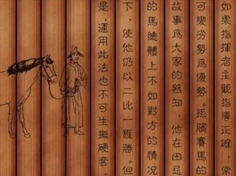 如果指揮者主觀指導正確
可變劣勢為優勢。孫臏賽馬的
故事為大家所熟知，他在田忌
的馬總體上不如對方的情況
下，使他仍以二比一獲勝。但
是，運用此法也不可生搬硬套。